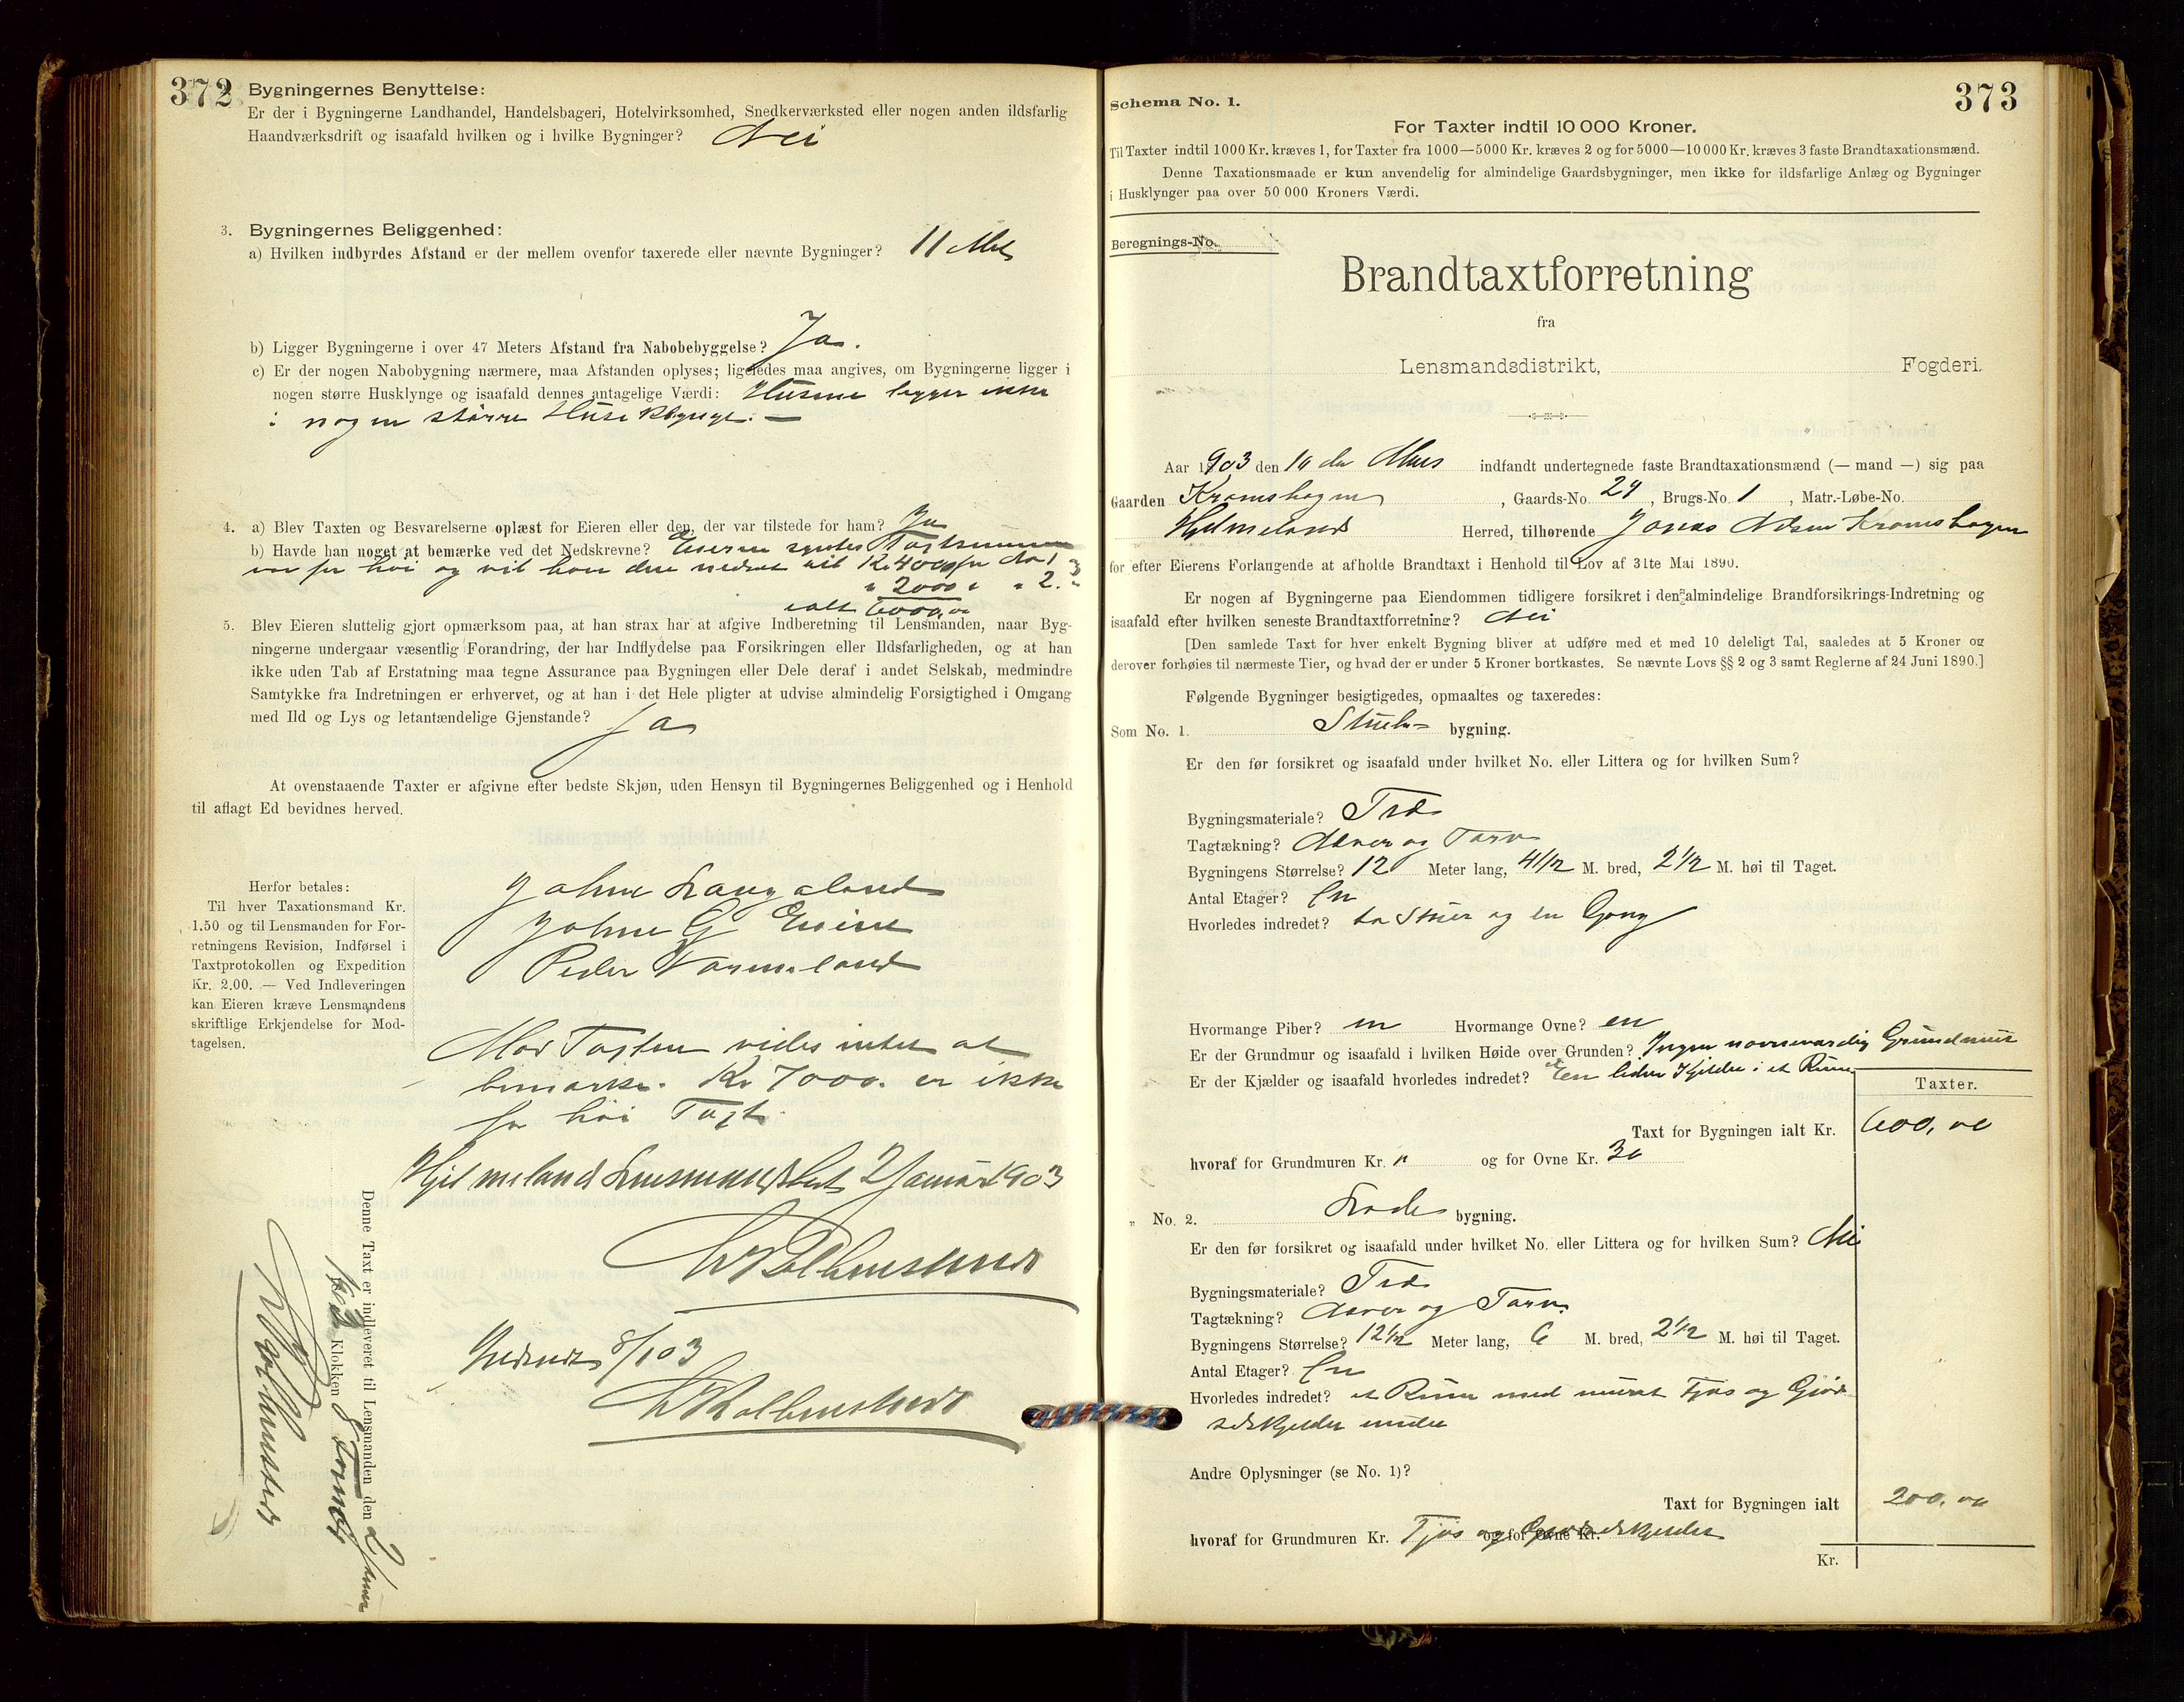 372
Bygningernes Benyttelse:
Er der i Bygningerne Landhandel, Handelsbageri, Hotelvirksomhed, Snedkerværksted eller nogen anden ildsfarlig
Haandværksdrift og isaafald hvilken og i hvilke Bygninger? Nei
3. Bygningernes Beliggenhed:
a) Hvilken indbyrdes Afstand er der mellem ovenfor taxerede eller nævnte Bygninger? 11 Met
b) Ligger Bygningerne i over 47 Meters Afstand fra Nabobebyggelse? Ja.
c) Er der nogen Nabobygning nærmere, maa Afstanden oplyses; ligeledes maa angives, om Bygningerne ligger i
nogen større Husklynge og isaafald dennes antagelige Værdi: Husene ligger ikke
i nogen större
4. a) Blev Taxten og Besvarelserne oplæst for Eieren eller den, der var tilstede for ham? Ja
b) Havde han noget at bemærke ved det Nedskrevne? Eieren syntes Taxtsummen
var for høi og vil have den nedsat til Kr 4000 for No 1
" 2000 " " 2.
ialt 6000,00
5. Blev Eieren sluttelig gjort opmærksom paa, at han strax har at afgive Indberetning til Lensmanden, naar Byg-
ningerne undergaar væsentlig Forandring, der har Indflydelse paa Forsikringen eller Ildsfarligheden, og at han
ikke uden Tab af Erstatning maa tegne Assurance paa Bygningen eller Dele deraf i andet Selskab, medmindre
Samtykke fra Indretningen er erhvervet, og at han i det Hele pligter at udvise almindelig Forsigtighed i Omgang
med Ild og Lys og letantændelige Gjenstande? Ja
At ovenstaaende Taxter er afgivne efter bedste Skjøn, uden Hensyn til Bygningernes Beliggenhed og i Henhold
til aflagt Ed bevidnes herved.
Herfor betales:
Til hver Taxationsmand Kr.
1.50 og til Lensmanden for For-
retningens Revision, Indførsel i
Taxtprotokollen og Expedition
Kr. 2.00. — Ved Indleveringen
kan Eieren kræve Lensmandens
skriftlige Erkjendelse for Mod-
tagelsen.
Johne Langeland
Johne G Eiene
Peder Vormeland
Mod Taxten vides intet at
bemærke. Kr 7000. er ikke
for høi Taxt.
Hjelmeland Lensmandsbest 2 Januar 1903
Nedsendt 8/1 03
Denne Taxt er indleveret til Lensmanden den 2 Januar
1903 Klokken 8 Formd
373
Schema No. 1.
For Taxter indtil 10 000 Kroner.
Til Taxter indtil 1000 Kr. kræves 1, for Taxter fra 1000—5000 Kr. kræves 2 og for 5000—10 000 Kr. kræves 3 faste Brandtaxationsmænd.
Denne Taxationsmaade er kun anvendelig for almindelige Gaardsbygninger, men ikke for ildsfarlige Anlæg og Bygninger
i Husklynger paa over 50 000 Kroners Værdi.
Beregnings-No.
Brandtaxtforretning
fra
Lensmandsdistrikt, Fogderi.
Aar 1903 den 10 de Mars indfandt undertegnede faste Brandtaxationsmænd (— mand —) sig paa
Gaarden Kromshagen, Gaards-No. 29, Brugs-No. 1, Matr.-Løbe-No.
Hjelmeland Herred, tilhørende Jonas Kromshagen
for efter Eierens Forlangende at afholde Brandtaxt i Henhold til Lov af 31te Mai 1890.
Er nogen af Bygningerne paa Eiendommen tidligere forsikret i den almindelige Brandforsikrings-Indretning og
isaafald efter hvilken seneste Brandtaxtforretning? Nei
[Den samlede Taxt for hver enkelt Bygning bliver at udføre med et med 10 deleligt Tal, saaledes at 5 Kroner og
derover forhøies til nærmeste Tier, og hvad der er under 5 Kroner bortkastes. Se nævnte Lovs §§ 2 og 3 samt Reglerne af 24 Juni 1890.]
Følgende Bygninger besigtigedes, opmaaltes og taxeredes:
Som No. 1. Stueh- bygning.
Er den før forsikret og isaafald under hvilket No. eller Littera og for hvilken Sum?
Bygningsmateriale? Træ
Tagtækning? Næver og Torv
Bygningens Størrelse? 12 Meter lang, 4 1/2 M. bred, 2 1/2 M. høi til Taget.
Antal Etager? En
Hvorledes indredet? to Stuer og en Gang
Hvormange Piber? en Hvormange Ovne? en
Er der Grundmur og isaafald i hvilken Høide over Grunden? Ingen nævneværdig Grundmur
Er der Kjælder og isaafald hvorledes indredet? En liden Kjelder i et Rum
Taxter.
Taxt for Bygningen ialt Kr. 600,00
hvoraf for Grundmuren Kr. " og for Ovne Kr. 30
" No. 2. Lade bygning.
Er den før forsikret og isaafald under hvilket No. eller Littera og for hvilken Sum? Nei
Bygningsmateriale? Træ
Tagtækning? Næver og Torv
Bygningens Størrelse? 12 1/2 Meter lang, 6 M. bred, 2 1/2 M. høi til Taget.
Antal Etager? En
Hvorledes indredet? et Rum med muret Fjøs og Gjød-
selskjelder under
Andre Oplysninger (se No. 1)?
Taxt for Bygningen ialt 200,00
hvoraf for Grundmuren Kr. Fjøs og Gjødselskjelder og for Ovne Kr.
Kr.